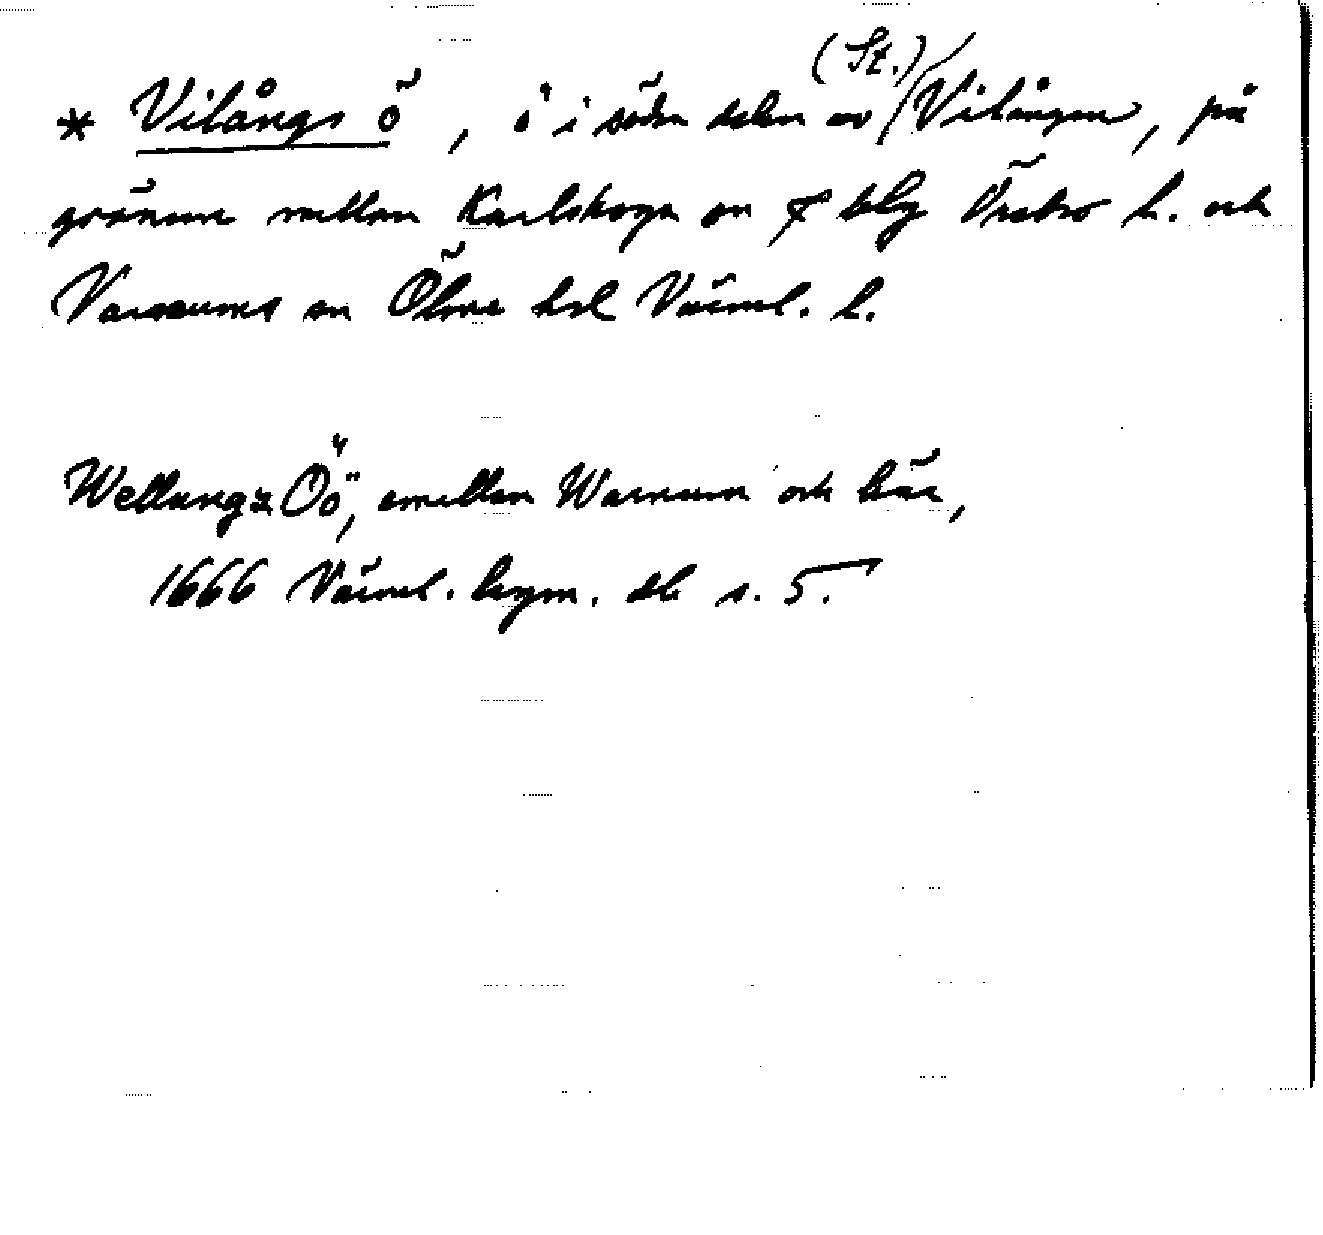 * Vilångs ö, ö i södra delen av (St.) Vilången, på
gränsen mellan Karlskoga sn f blg Örebro l. och
Varnums sn Ölme hd Värml. l.
Wellungz Öö, emellan Warnum och här,
1666 Värml. bergm. db s. 5.